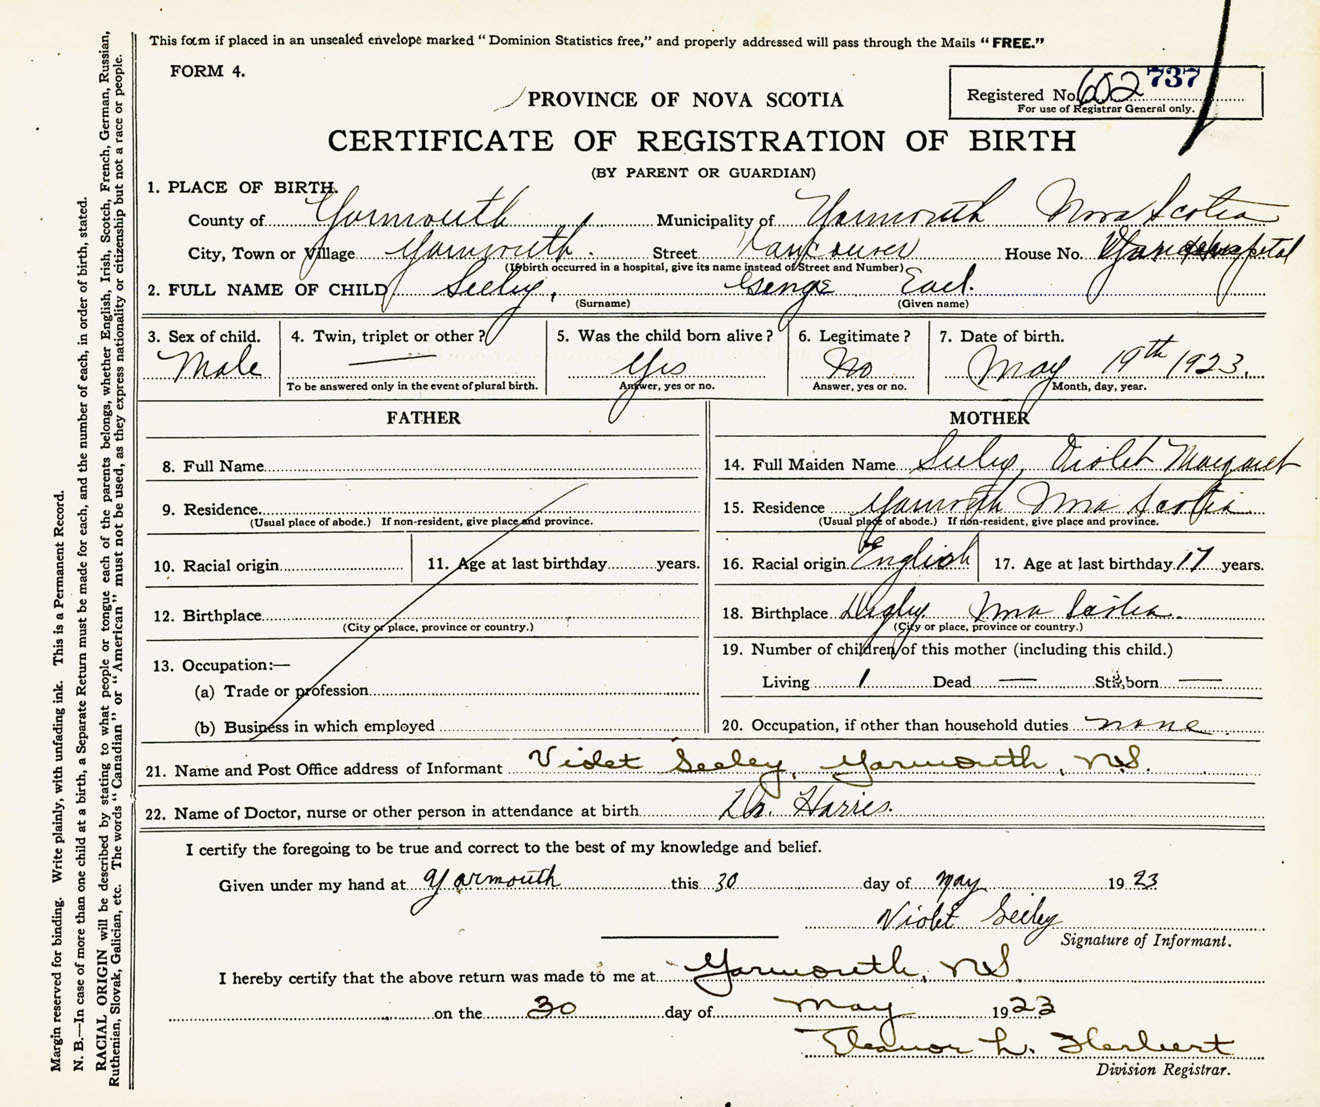 This form if placed in an unsealed envelope marked "Dominion Statistics free," and properly addressed will pass through the Mails "FREE."
FORM 4.
Registered No. 602 737
For use of Registrar General only.
PROVINCE OF NOVA SCOTIA
CERTIFICATE OF REGISTRATION OF BIRTH
(BY PARENT OR GUARDIAN)
1. PLACE OF BIRTH.
County of Yarmouth Municipality of Yarmouth Nova Scotia
City, Town or Village Yarmouth. Street Vancouver House No. hospital
(If birth occurred in a hospital, give its name instead of Street and Number)
2. FULL NAME OF CHILD Seeley, George Earl.
(Surname) (Given name)
3. Sex of child. 4. Twin, triplet or other? 5. Was the child born alive? 6. Legitimate? 7. Date of birth.
Male — Yes No May 19th 1923.
To be answered only in the event of plural birth. Answer, yes or no. Answer, yes or no. Month, day, year.
FATHER
8. Full Name
9. Residence
(Usual place of abode.) If non-resident, give place and province.
10. Racial origin 11. Age at last birthday years.
12. Birthplace
(City or place, province or country.)
13. Occupation:—
(a) Trade or profession
(b) Business in which employed
MOTHER
14. Full Maiden Name Seeley, Violet Margaret
15. Residence Yarmouth Nova Scotia
(Usual place of abode.) If non-resident, give place and province.
16. Racial origin English 17. Age at last birthday 17 years.
18. Birthplace Digby Nova Scotia.
(City or place, province or country.)
19. Number of children of this mother (including this child.)
Living 1 Dead — Stillborn —
20. Occupation, if other than household duties none
21. Name and Post Office address of Informant Violet Seeley, Yarmouth, N.S.
22. Name of Doctor, nurse or other person in attendance at birth Dr. Harris.
I certify the foregoing to be true and correct to the best of my knowledge and belief.
Given under my hand at Yarmouth this 30 day of May 1923
Violet Seeley
Signature of Informant.
I hereby certify that the above return was made to me at Yarmouth, NS
on the 30 day of May 1923
Eleanor L. Herbert
Division Registrar.
Margin reserved for binding. Write plainly, with unfading ink. This is a Permanent Record.
N. B.—In case of more than one child at a birth, a Separate Return must be made for each, and the number of each, in order of birth, stated.
RACIAL ORIGIN will be described by stating to what people or tongue each of the parents belongs, whether English, Irish, Scotch, French, German, Russian,
Ruthenian, Slovak, Galician, etc. The words "Canadian" or "American" must not be used, as they express nationality or citizenship but not a race or people.